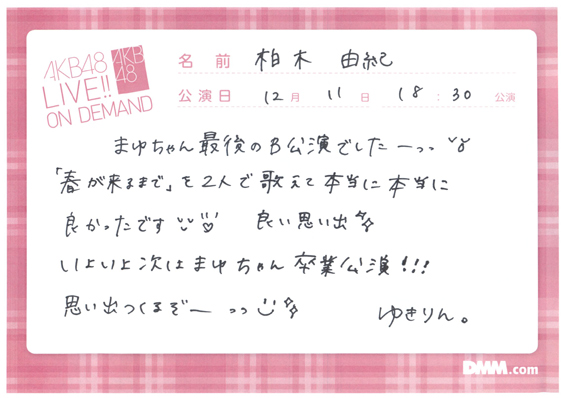 AKB48
LIVE!!
ON DEMAND
AKB
48
名前 柏木 由紀
公演日 12月 11日 18:30 公演
まゆちゃん最後のB公演でしたーっっ
「春が来るまで」を2人で歌えて本当に本当に
良かったです 良い思い出
いよいよ次はまゆちゃん卒業公演!!!
思い出つくるぞーっっ
ゆきりん。
DMM.com